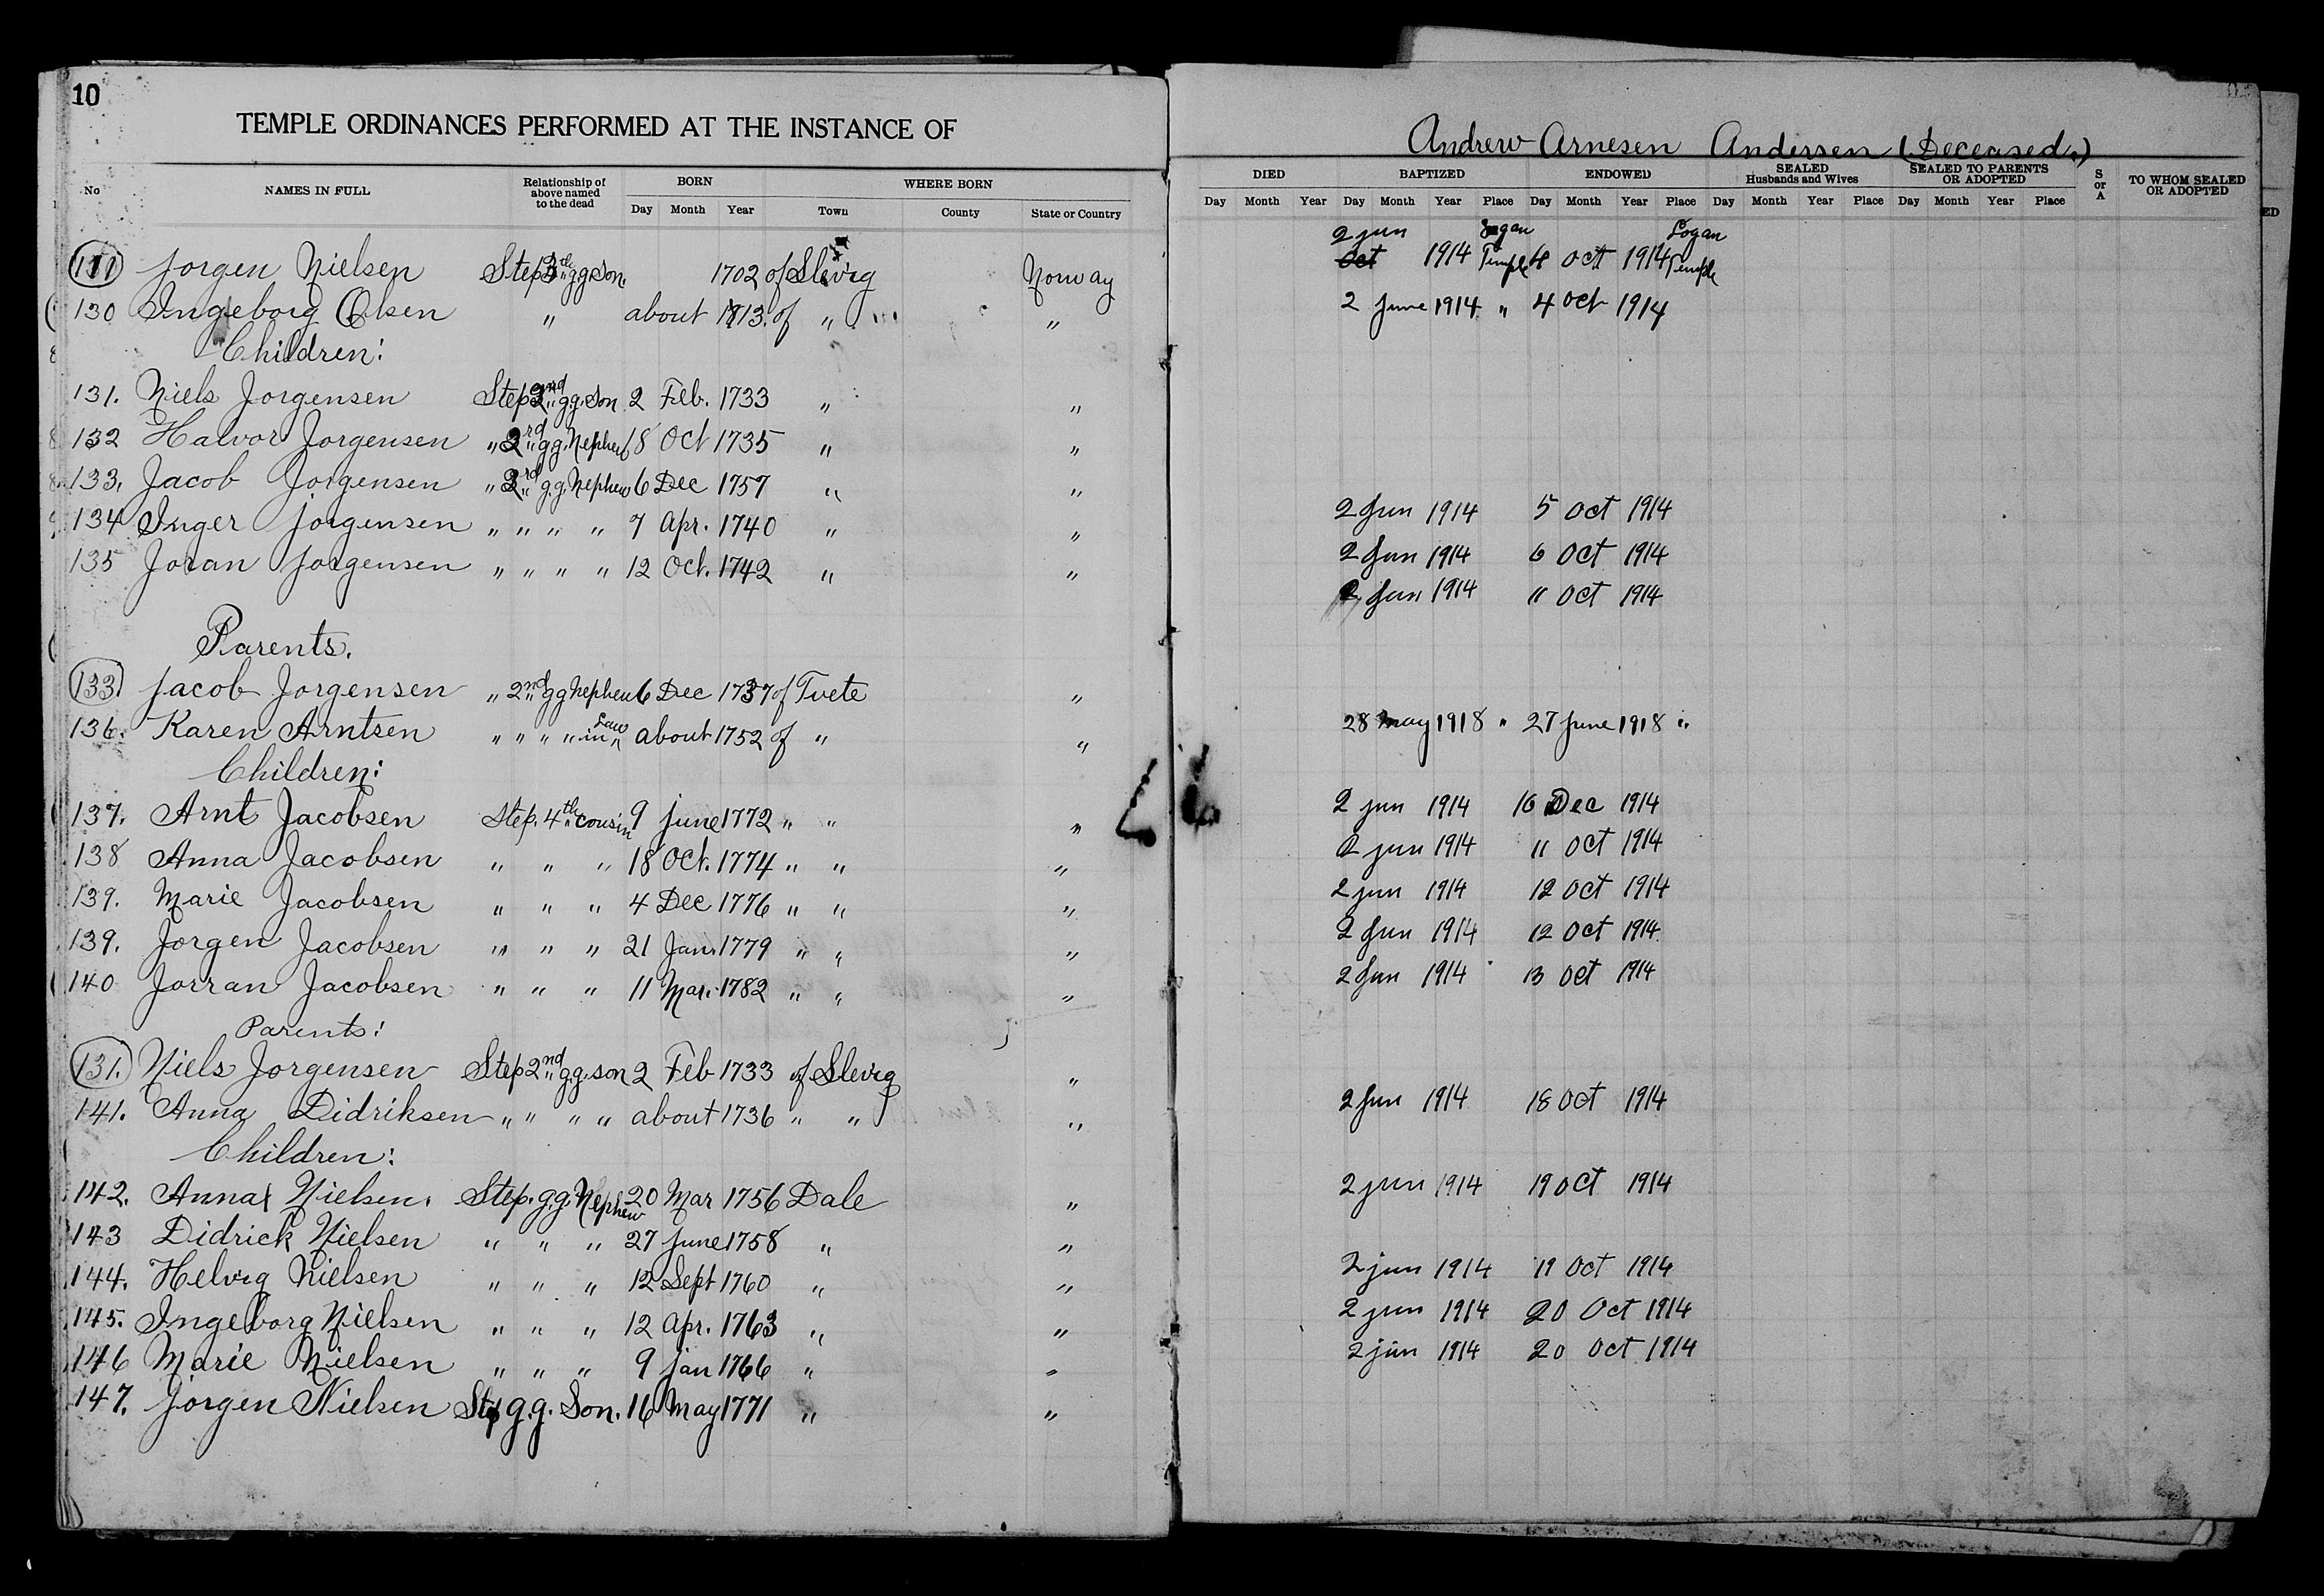 10
TEMPLE ORDINANCES PERFORMED AT THE INSTANCE OF
Andrew Arnesen Andersen (Deceased.)
No NAMES IN FULL Relationship of above named to the dead BORN Day Month Year WHERE BORN Town County State or Country
DIED Day Month Year BAPTIZED Day Month Year Place ENDOWED Day Month Year Place SEALED Husbands and Wives Day Month Year Place SEALED TO PARENTS OR ADOPTED Day Month Year Place S or A TO WHOM SEALED OR ADOPTED
Jorgen Nielsen Step 3th g.g. son. 1702 of Slevig Norway 2 jun Oct 1914 Logan Temple 4 Oct 1914 Logan Temple
130 Ingeborg Olsen " about 1713. of " " 2 June 1914 " 4 Oct 1914
Children:
131. Niels Jorgensen Step 2nd g.g. son 2 Feb. 1733 " "
132 Halvor Jorgensen " 2rd g.g. Nephew 18 Oct 1735 " "
133. Jacob Jorgensen " 2rd g.g. Nephew 6 Dec 1757 " "
134 Inger Jorgensen " " " " 7 Apr. 1740 " " 2 Jun 1914 5 Oct 1914
135 Joran Jorgensen " " " " 12 Oct. 1742 " " 2 Jun 1914 6 Oct 1914
2 Jun 1914 11 Oct 1914
Parents.
133 Jacob Jorgensen " 2nd g g Nephew 6 Dec 1737 of Tvete "
136. Karen Arntsen " " " " in Law about 1752 of " " 28 May 1918 " 27 June 1918 "
Children:
137. Arnt Jacobsen Step. 4th cousin 9 June 1772 " " " 2 jun 1914 16 Dec 1914
138 Anna Jacobsen " " " 18 Oct. 1774 " " " 2 jun 1914 11 Oct 1914
139. Marie Jacobsen " " " 4 Dec 1776 " " " 2 jun 1914 12 Oct 1914
139. Jorgen Jacobsen " " " 21 Jan. 1779 " " " 2 Jun 1914 12 Oct 1914.
140 Jorran Jacobsen " " " 11 Mar. 1782 " " " 2 Jun 1914 13 Oct 1914
Parents:
131. Niels Jorgensen Step 2nd g.g. son 2 Feb 1733 of Slevig "
141. Anna Didriksen " " " " about 1736 " " " 2 Jun 1914 18 Oct 1914
Children:
142. Anna Nielsen. Step. g.g. Nephew 20 Mar 1756 Dale " 2 jun 1914 19 Oct 1914
143 Didrick Nielsen " " " 27 June 1758 " "
144. Helvig Nielsen " " " 12 Sept 1760 " " 2 jun 1914 19 Oct 1914
145. Ingeborg Nielsen " " " 12 Apr. 1763 " " 2 jun 1914 20 Oct 1914
146 Marie Nielsen " " " 9 Jan 1766 " " 2 jun 1914 20 Oct 1914
147. Jorgen Nielsen Step g.g. Son. 16 May 1771 " "